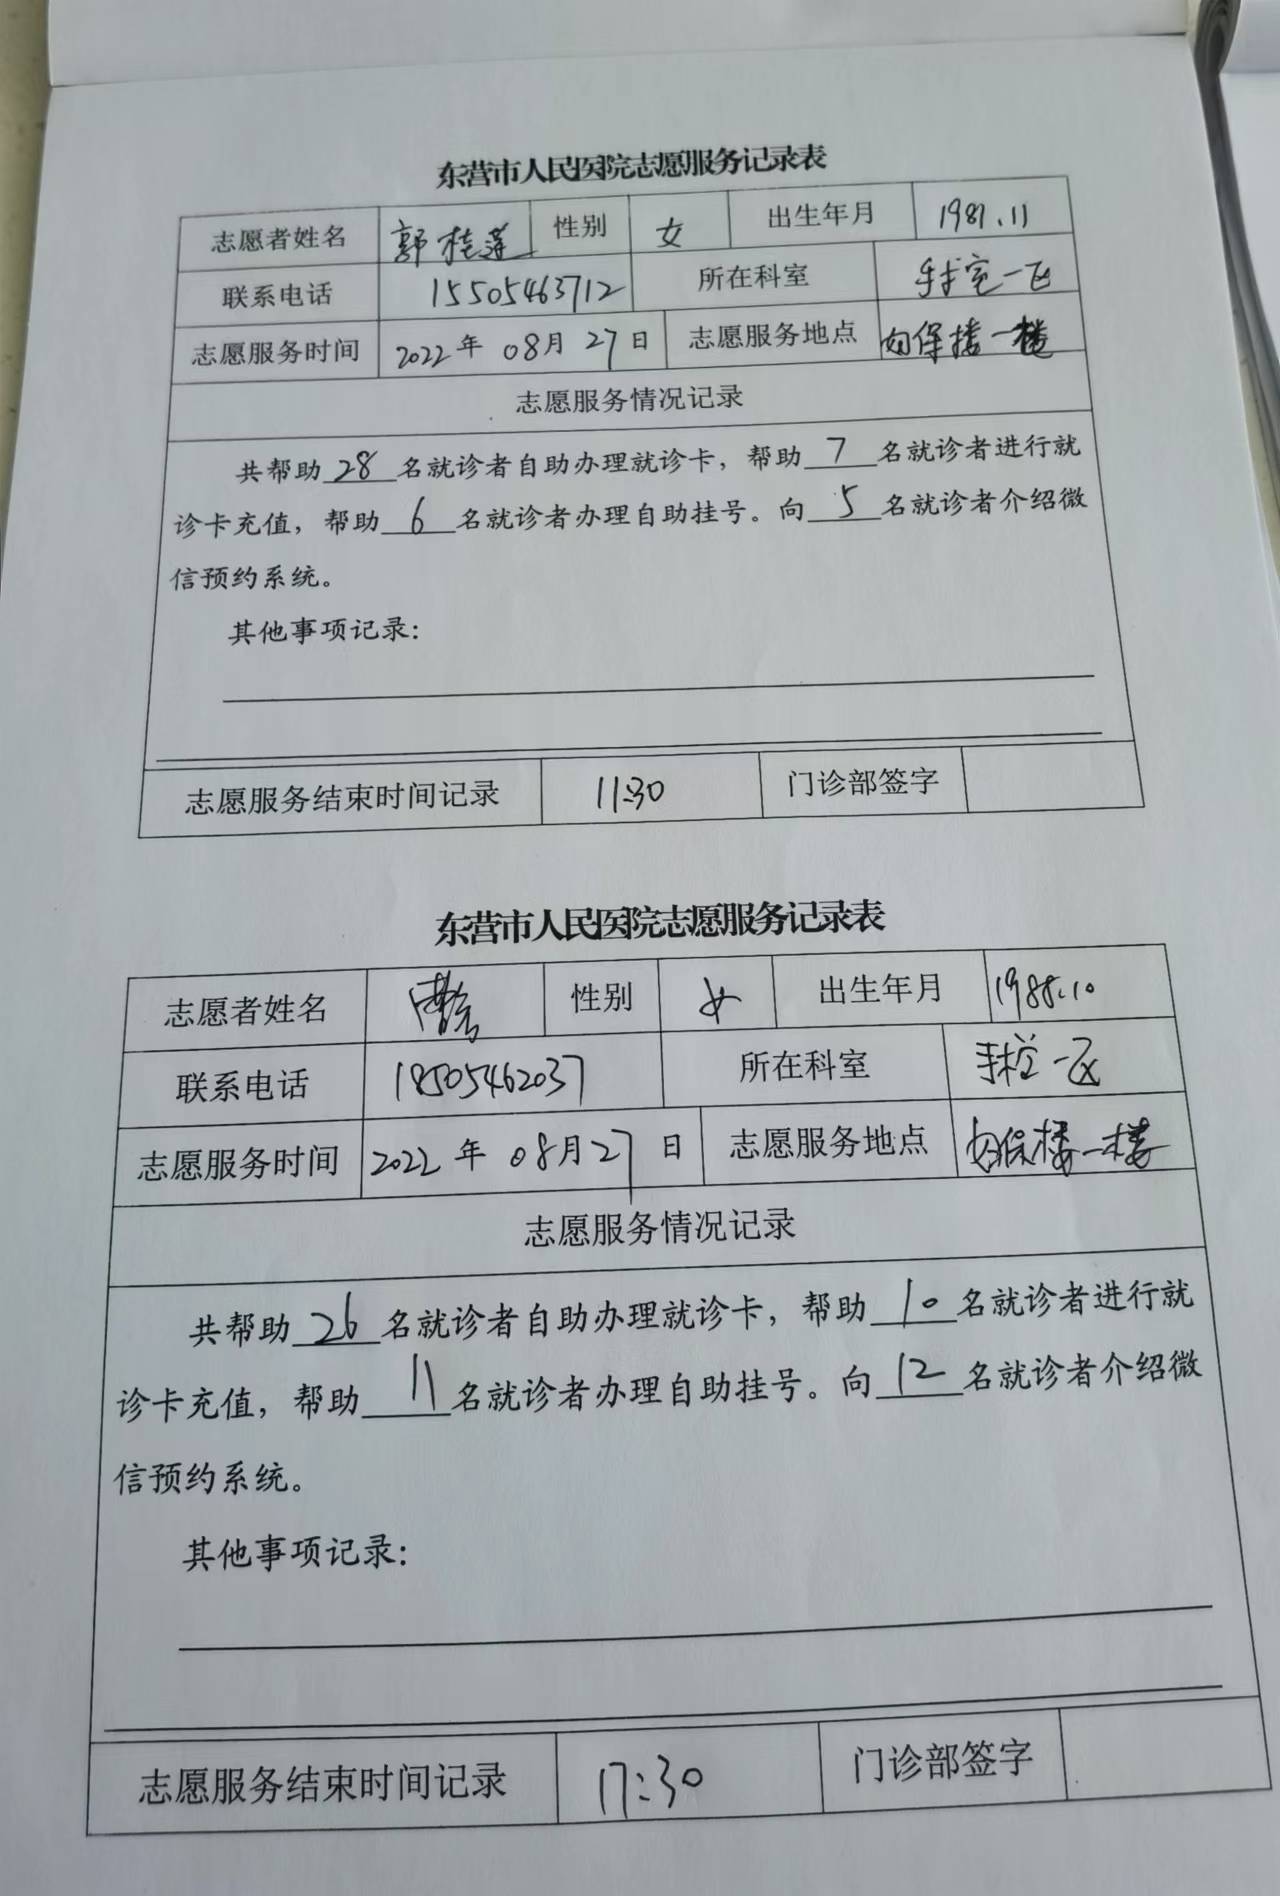 东营市人民医院志愿服务记录表
志愿者姓名 郭桂莲 性别 女 出生年月 1981.11
联系电话 15505463712 所在科室 手术室一区
志愿服务时间 2022年 08月 27日 志愿服务地点 妇保楼一楼
志愿服务情况记录
共帮助 28 名就诊者自助办理就诊卡，帮助 7 名就诊者进行就
诊卡充值，帮助 6 名就诊者办理自助挂号。向 5 名就诊者介绍微
信预约系统。
其他事项记录：
志愿服务结束时间记录 11:30 门诊部签字
东营市人民医院志愿服务记录表
志愿者姓名 性别 女 出生年月 1988.10
联系电话 18505462037 所在科室 手术室一区
志愿服务时间 2022年 08月27日 志愿服务地点 妇保楼一楼
志愿服务情况记录
共帮助 26 名就诊者自助办理就诊卡，帮助 10 名就诊者进行就
诊卡充值，帮助 11 名就诊者办理自助挂号。向 12 名就诊者介绍微
信预约系统。
其他事项记录：
志愿服务结束时间记录 17:30 门诊部签字